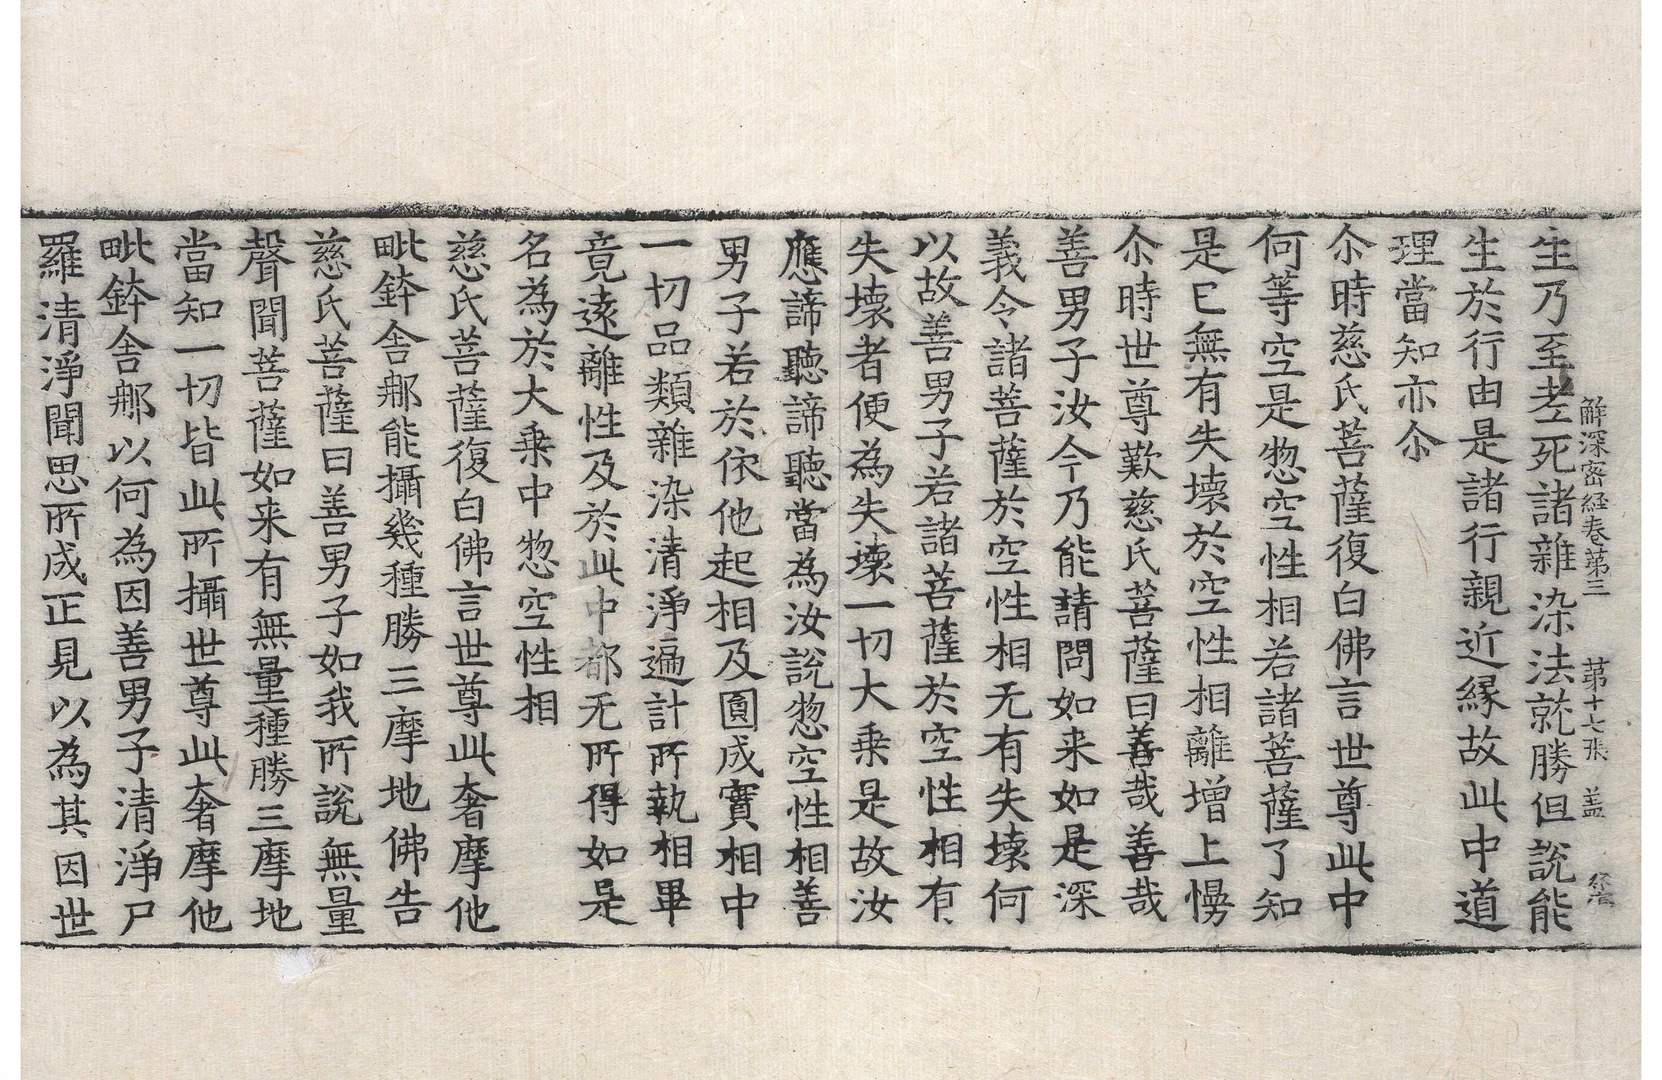 解深密経巻第三　第十七張　盖
生乃至老死諸雜染法就勝但說能
生於行由是諸行親近縁故此中道
理當知亦尒
尒時慈氏菩薩復白佛言世尊此中
何等空是惣空性相若諸菩薩了知
是已無有失壞於空性相離增上慢
尒時世尊歎慈氏菩薩曰善哉善哉
善男子汝今乃能請問如来如是深
義令諸菩薩於空性相无有失壞何
以故善男子若諸菩薩於空性相有
失壞者便為失壞一切大乗是故汝
應諦聽諦聽當為汝說惣空性相善
男子若於依他起相及圓成實相中
一切品類雜染清淨遍計所執相畢
竟遠離性及於此中都无所得如是
名為於大乗中惣空性相
慈氏菩薩復白佛言世尊此奢摩他
毗鉢舍那能攝幾種勝三摩地佛告
慈氏菩薩曰善男子如我所說無量
聲聞菩薩如来有無量種勝三摩地
當知一切皆此所攝世尊此奢摩他
毗鉢舍那以何為因善男子清淨尸
羅清淨聞思所成正見以為其因世